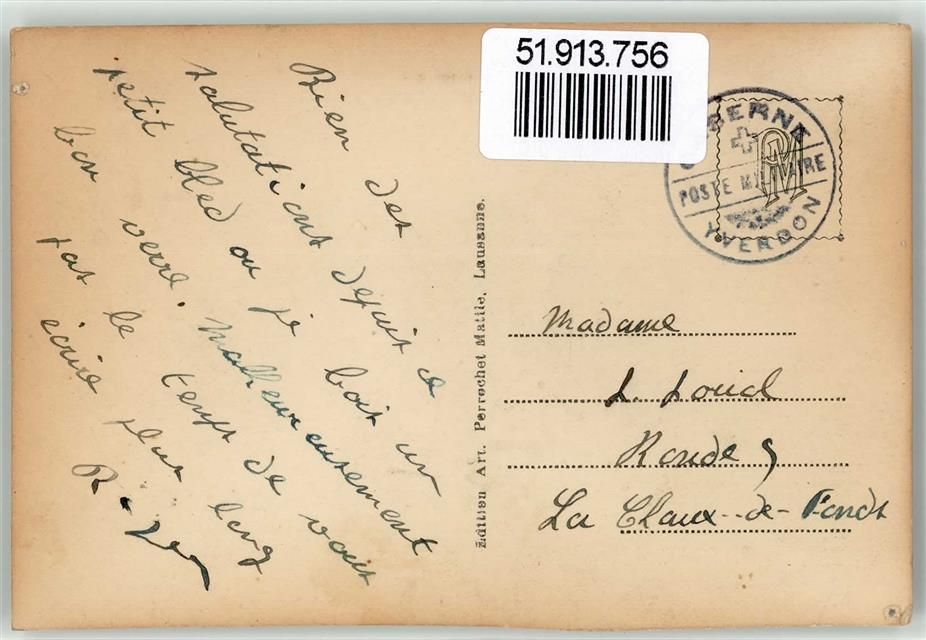 51.913.756
CASERNE
POSTE MILITAIRE
YVERDON
PM
Bien des
salutations depuis ce
petit bled où je bois un
bon verre. Malheureusement
pas le temps de vous
écrire plus long
Madame
L.
Ronde 9
La Chaux-de-Fonds
Edition Art. Perrochet Matile, Lausanne.